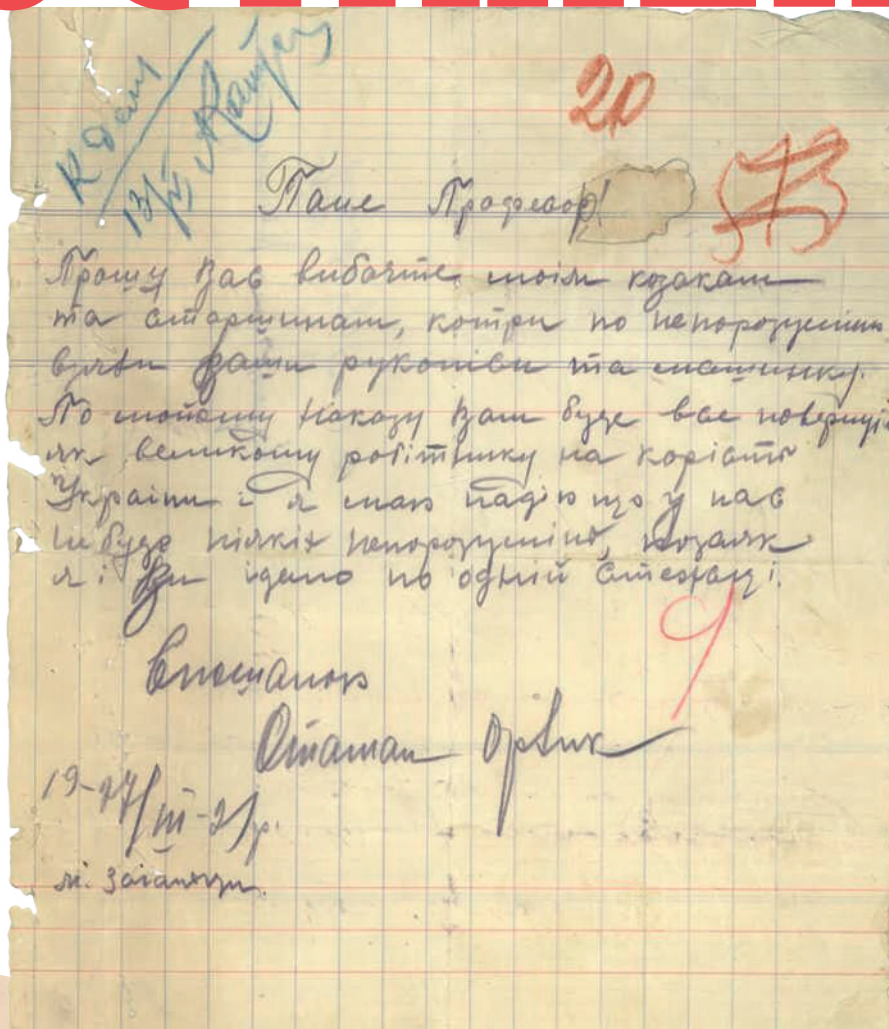 К делу
13/V
20
573
Пане Професор!
Прошу Вас вибачте моїм козакам
та старшинам, котри по непорозумінню
взяли Ваши рукописи та машинку.
По мойому наказу Вам буде все
як великому робітнику на корість
Украіни і я маю надію що у нас
не буде ніякіх непорозумінь, позаяк
я і Ви ідемо по одній стежці.
З пошаною
Отаман Орлик
19-27/III-21р.
м.
9